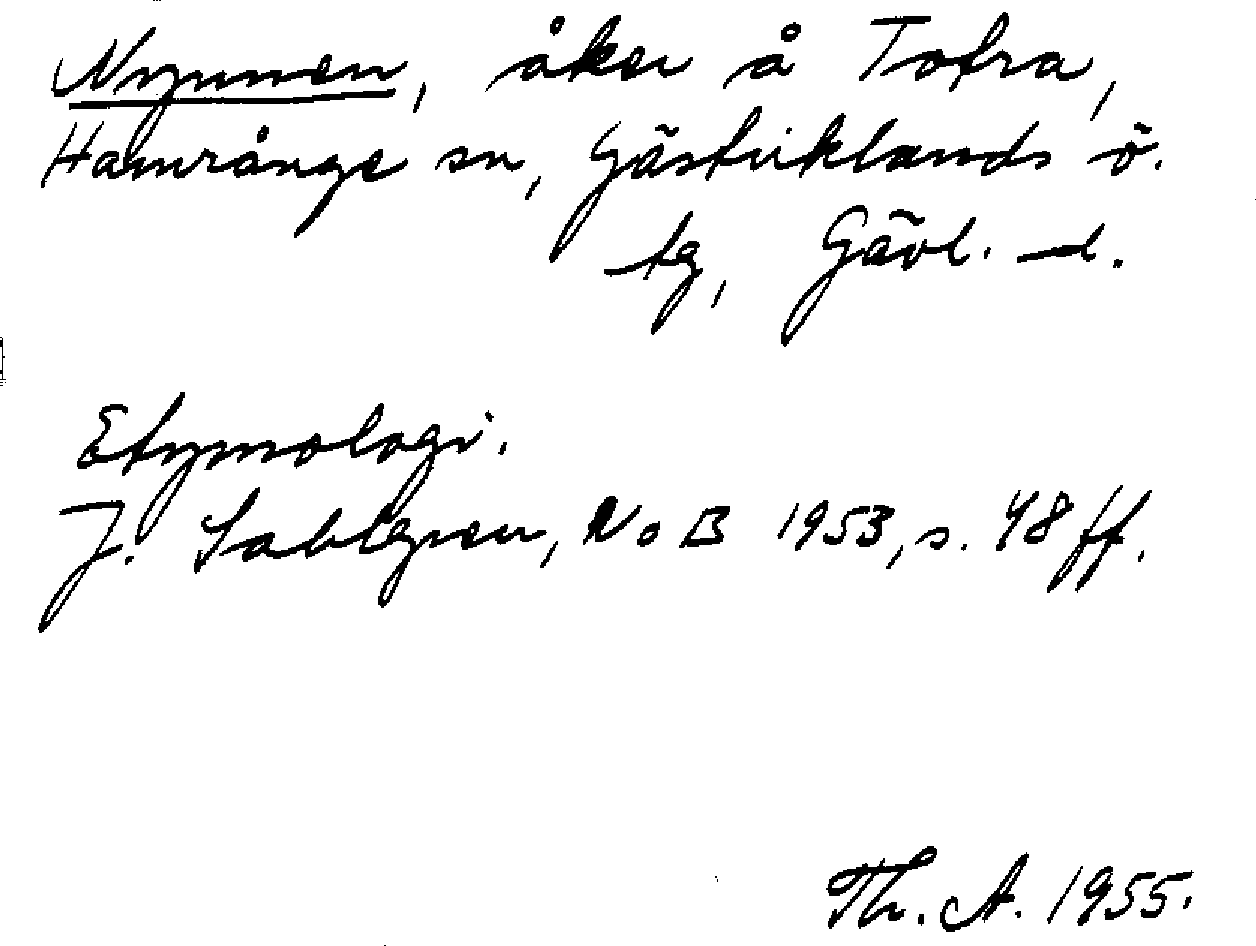 Nymmen, åker å Totra,
Hamrånge sn, Gästriklands ö.
tg, Gävl. l.
Etymologi.
J. Sahlgren, NoB 1953, s. 48 ff.
Th. A. 1955.